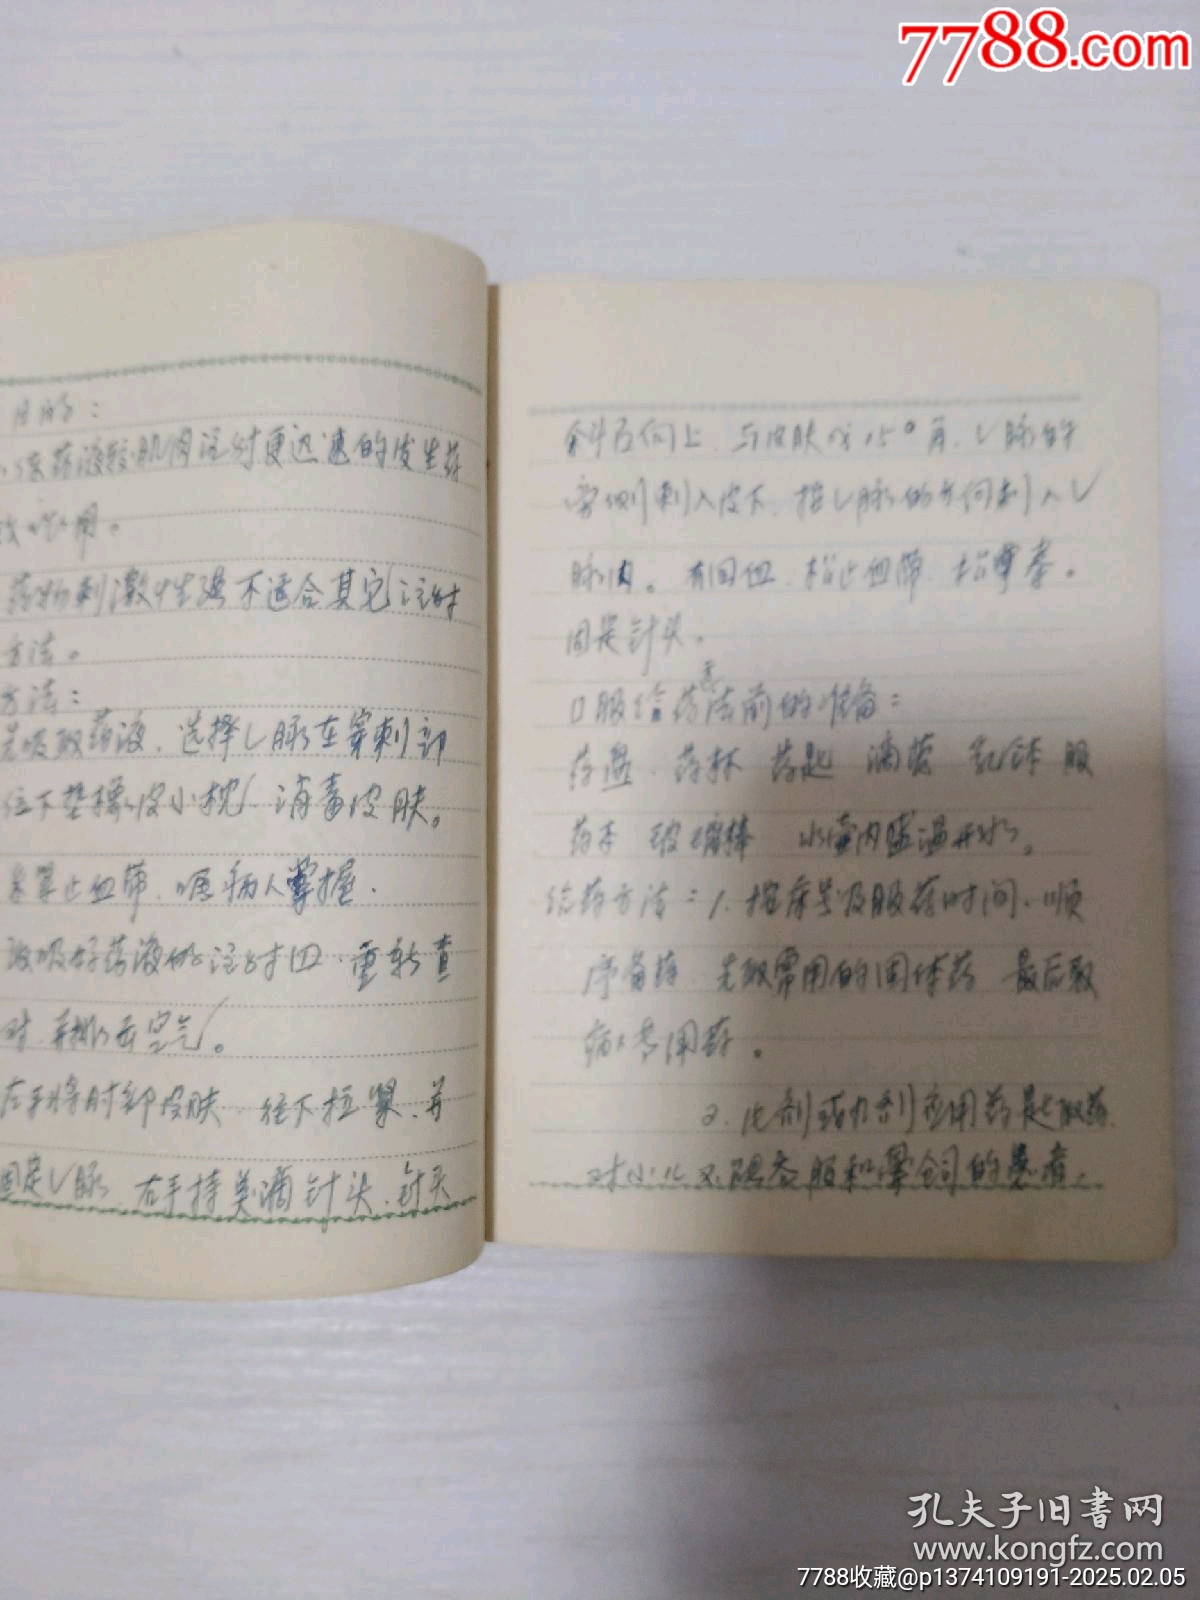 7788.com
目的：
药液较肌肉注射更迅速的发生药
效作用。
药物刺激性强不适合其它注射
方法。
方法：
先吸取药液、选择V脉在穿刺部
位下垫橡皮小枕、消毒皮肤。
止血带、嘱病人掌握、
吸好药液的注射四、重新查
对、排去空气。
左手将肘部皮肤、往下拉紧、并
固定V脉、右手持美滴针头、针头
斜石向上、与皮肤成15°角、V脉的
旁侧刺入皮下、按V脉的方向刺入V
脉内。有回血、松止血带、松拳。
固定针头。
口服给药法前的准备：
药盘、药杯 药匙 滴管 乳钵 服
药本 玻璃棒 水壶内盛温开水。
给药方法：1、按床号及服药时间、顺
序备药、先取常用的固体药 最后取
病人专用药。
2、片剂或丸剂应用药匙取药、
对小儿
7788收藏@p1374109191-2025.02.05
孔夫子旧书网
www.kongfz.com